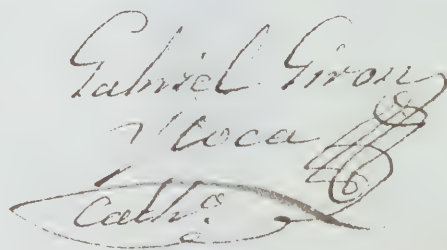 Gabriel Giron
Roca
Cath.º